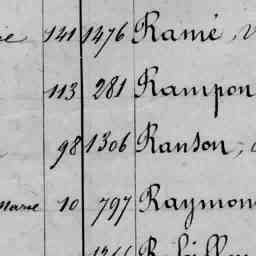 141 1476 Ramé,
113 281 Rampon
98 1306 Ranson,
Marie 10 797 Raymon